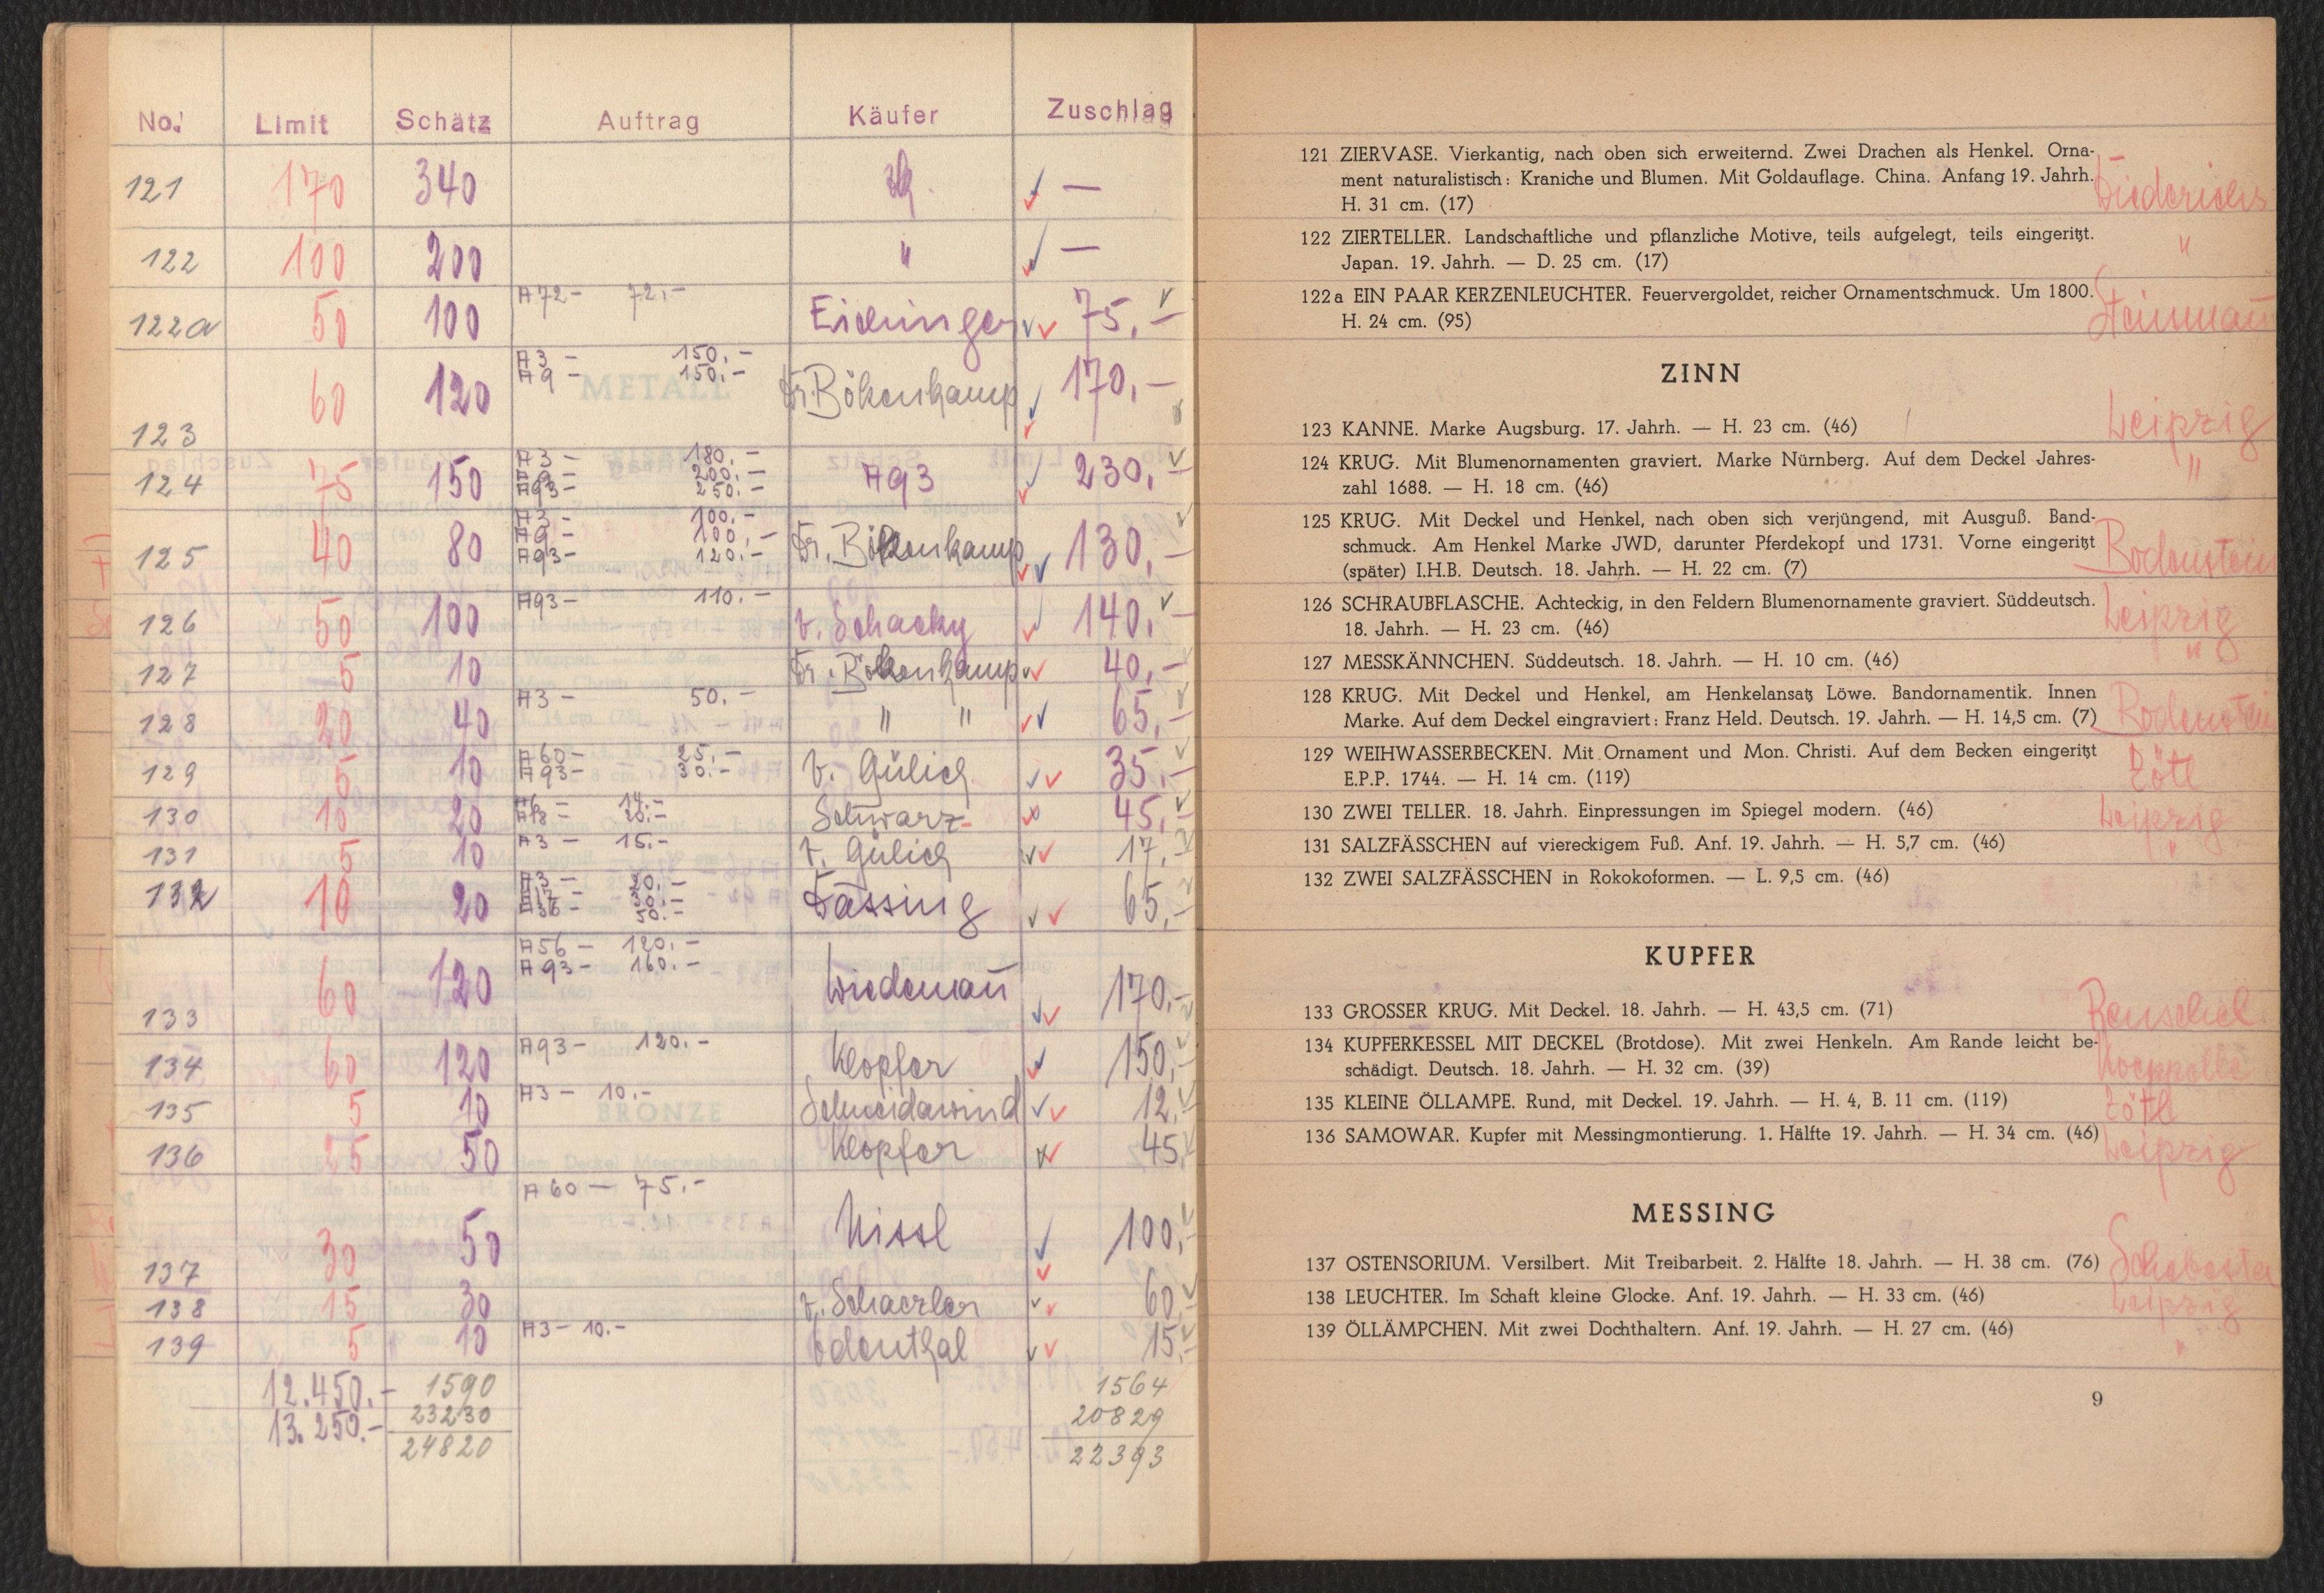 No. Limit Schätz Auftrag Käufer Zuschlag
121 170 340 —
122 100 200 " —
122a 50 100 A72- 72,- Eichinger 75,-
123 60 120 A3 - 150,- A9 - 150,- Dr. Bökenkamp 170,-
124 75 150 A3 - 180.- A9 - 200.- A93- 250.- A93 230,-
125 40 80 A3 - 100.- A9 - 100,- A93- 120.- Dr. Bökenkamp 130,-
126 50 100 A93- 110.- v. Schacky 140,-
127 5 10 Dr. Bökenkamp 40,-
128 20 40 A3 - 50.- " " 65,-
129 5 10 A60- 25,- A93- 30.- v. Gülich 35,-
130 10 20 A6 - 14.- A18 - 20.- Schwarz 45,-
131 5 10 A3 - 15.- v. Gülich 17,-
132 10 20 A3 - 20.- 30.- A36- 50.- Fassing 65,-
133 60 120 A56 - 120.- A93- 160.- Wiedemañ 170,-
134 60 120 A93- 120.- Klopfer 150,-
135 5 10 A3 - 10.- Schneidawind 12,-
136 25 50 Klopfer 45,-
137 30 50 A60 - 75.- Nissl 100,-
138 15 30 v. Schaezler 60,-
139 5 10 A3- 10.- Odenthal 15,-
12.450.- 1590 1564
13.250.- 23230 20829
24820 22393
121 ZIERVASE. Vierkantig, nach oben sich erweiternd. Zwei Drachen als Henkel. Orna-
ment naturalistisch: Kraniche und Blumen. Mit Goldauflage. China. Anfang 19. Jahrh. Diederichs
H. 31 cm. (17)
122 ZIERTELLER. Landschaftliche und pflanzliche Motive, teils aufgelegt, teils eingeritzt. "
Japan. 19. Jahrh. — D. 25 cm. (17)
122a EIN PAAR KERZENLEUCHTER. Feuervergoldet, reicher Ornamentschmuck. Um 1800. Steinmañ
H. 24 cm. (95)
ZINN
123 KANNE. Marke Augsburg. 17. Jahrh. — H. 23 cm. (46) Leipzig
124 KRUG. Mit Blumenornamenten graviert. Marke Nürnberg. Auf dem Deckel Jahres- "
zahl 1688. — H. 18 cm. (46)
125 KRUG. Mit Deckel und Henkel, nach oben sich verjüngend, mit Ausguß. Band-
schmuck. Am Henkel Marke JWD, darunter Pferdekopf und 1731. Vorne eingeritzt Bodenstein
(später) I.H.B. Deutsch. 18. Jahrh. — H. 22 cm. (7)
126 SCHRAUBFLASCHE. Achteckig, in den Feldern Blumenornamente graviert. Süddeutsch. Leipzig
18. Jahrh. — H. 23 cm. (46)
127 MESSKÄNNCHEN. Süddeutsch. 18. Jahrh. — H. 10 cm. (46) "
128 KRUG. Mit Deckel und Henkel, am Henkelansatz Löwe. Bandornamentik. Innen Bodenstein
Marke. Auf dem Deckel eingraviert: Franz Held. Deutsch. 19. Jahrh. — H. 14,5 cm. (7)
129 WEIHWASSERBECKEN. Mit Ornament und Mon. Christi. Auf dem Becken eingeritzt Zötl
E.P.P. 1744. — H. 14 cm. (119)
130 ZWEI TELLER. 18. Jahrh. Einpressungen im Spiegel modern. (46) Leipzig
131 SALZFÄSSCHEN auf viereckigem Fuß. Anf. 19. Jahrh. — H. 5,7 cm. (46) "
132 ZWEI SALZFÄSSCHEN in Rokokoformen. — L. 9,5 cm. (46)
KUPFER
133 GROSSER KRUG. Mit Deckel. 18. Jahrh. — H. 43,5 cm. (71)
134 KUPFERKESSEL MIT DECKEL (Brotdose). Mit zwei Henkeln. Am Rande leicht be-
schädigt. Deutsch. 18. Jahrh. — H. 32 cm. (39)
135 KLEINE ÖLLAMPE. Rund, mit Deckel. 19. Jahrh. — H. 4, B. 11 cm. (119) Zötl
136 SAMOWAR. Kupfer mit Messingmontierung. 1. Hälfte 19. Jahrh. — H. 34 cm. (46) Leipzig
MESSING
137 OSTENSORIUM. Versilbert. Mit Treibarbeit. 2. Hälfte 18. Jahrh. — H. 38 cm. (76)
138 LEUCHTER. Im Schaft kleine Glocke. Anf. 19. Jahrh. — H. 33 cm. (46) Leipzig
139 ÖLLÄMPCHEN. Mit zwei Dochthaltern. Anf. 19. Jahrh. — H. 27 cm. (46) "
9